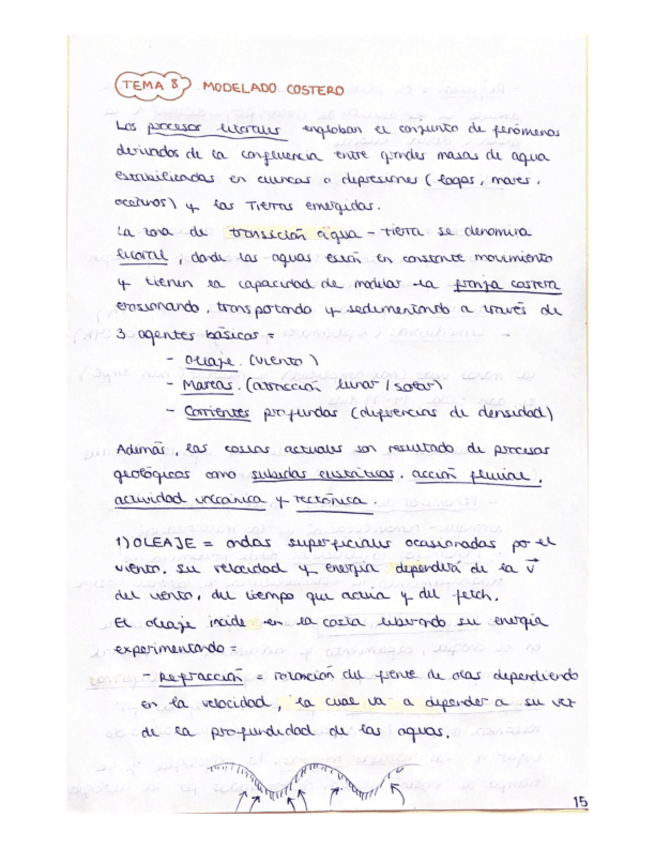 TEMA 8 MODELADO COSTERO
Los procesos litorales engloban el conjunto de fenómenos
derivados de la confluencia entre grandes masas de agua
estabilizadas en cuencas o depresiones (lagos, mares,
océanos) y las Tierras emergidas.
La zona de transición agua - tierra se denomina
litoral, donde las aguas están en constante movimiento
y tienen la capacidad de modelar la franja costera
erosionando, transportando y sedimentando a través de
3 agentes básicos =
- Oleaje. (viento)
- Mareas. (atracción lunar / solar)
- Corrientes profundas (diferencias de densidad)
Además, las costas actuales son resultado de procesos
geológicos como subidas eustáticas, acción fluvial,
actividad volcánica y tectónica.
1) OLEAJE = ondas superficiales ocasionadas por el
viento, su velocidad y energía dependerá de la v
del viento, del tiempo que actúa y del fetch.
El oleaje incide en la costa liberando su energía
experimentando =
- Refracción = rotación del frente de olas dependiendo
en la velocidad, la cual va a depender a su vez
de la profundidad de las aguas.
15